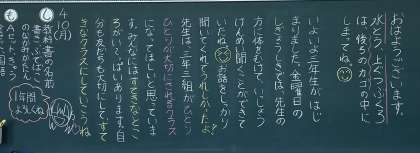 おはようございます。
水とう、上ぐつぶくろ
は、後ろのカゴの中に
しまってね。
いよいよ三年生がはじ
まりました。金曜日の
しぎょうしきでは、先生の
方に体をむけて、いっしょう
けんめい聞くことができて
いたね。お話をしっかり
聞いてくれてうれしかったよ。
先生は、三年三組が、ひとり
ひとりが大切にされるクラス
になってほしいと思っていま
す。みんなにはすてきなとこ
ろがいっぱいあります。自
分も友だちも大切にして、すて
きなクラスにしていこうね
4/10(月)
も し
教科書の名前
1年間
よろしくね